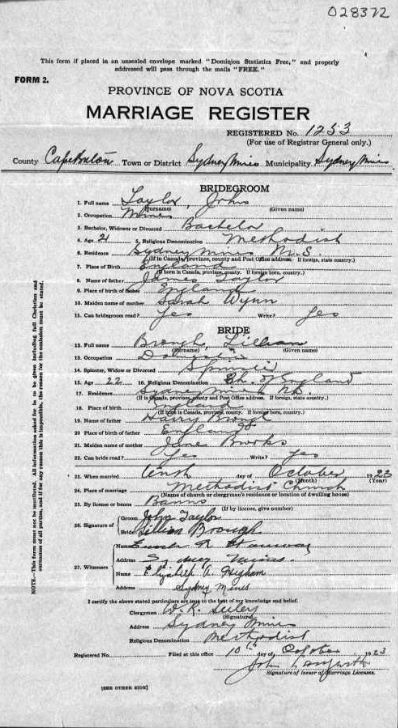 028372
This form if placed in an unsealed envelope marked "Dominion Statistics Free," and properly
addressed will pass through the mails "FREE."
FORM 2.
PROVINCE OF NOVA SCOTIA
MARRIAGE REGISTER
REGISTERED No. 1253
(For use of Registrar General only.)
County Cape Breton Town or District Sydney Mines Municipality Sydney Mines
BRIDEGROOM
1. Full name Taylor, John
(Surname) (Given name)
2. Occupation Miner
3. Bachelor, Widower or Divorced Bachelor
4. Age 21 5. Religious Denomination Methodist
6. Residence Sydney Mines N.S.
(If in Canada, province, county and Post Office address. If foreign, state country.)
7. Place of Birth England
(If born in Canada, province, county. If foreign, state country.)
8. Name of father James Taylor
9. Place of birth of father England
10. Maiden name of mother Sarah Wynn
11. Can bridegroom read? Yes Write? Yes
BRIDE
12. Full name Brough, Lillian
(Surname) (Given name)
13. Occupation Domestic
14. Spinster, Widow or Divorced Spinster
15. Age 22 16. Religious Denomination Ch. of England
17. Residence Sydney Mines N.S.
(If in Canada, province, county and Post Office address. If foreign, state country.)
18. Place of birth England
(If born in Canada, province, county. If foreign, state country.)
19. Name of father Harry Brough
20. Place of birth of father England
21. Maiden name of mother Jane Brooks
22. Can bride read? Yes Write? Yes
23. When married tenth day of October 1923
(Month) (Year)
24. Place of marriage Methodist Church
(Name of church or clergyman's residence or location of dwelling house)
25. By license or banns Banns
(If by license, give number)
26. Signature of Groom John Taylor
Bride Lillian Brough
27. Witnesses Name
Address Sydney Mines
Name Elizabeth A. Higham
Address Sydney Mines
I certify the above stated particulars are true to the best of my knowledge and belief.
Clergyman W. R. Seeley
(Signature)
Address Sydney Mines
Religious Denomination Methodist
Registered No. Filed at this office 10th day of October 1923
John
Signature of Issuer of Marriage Licenses.
[SEE OTHER SIDE]